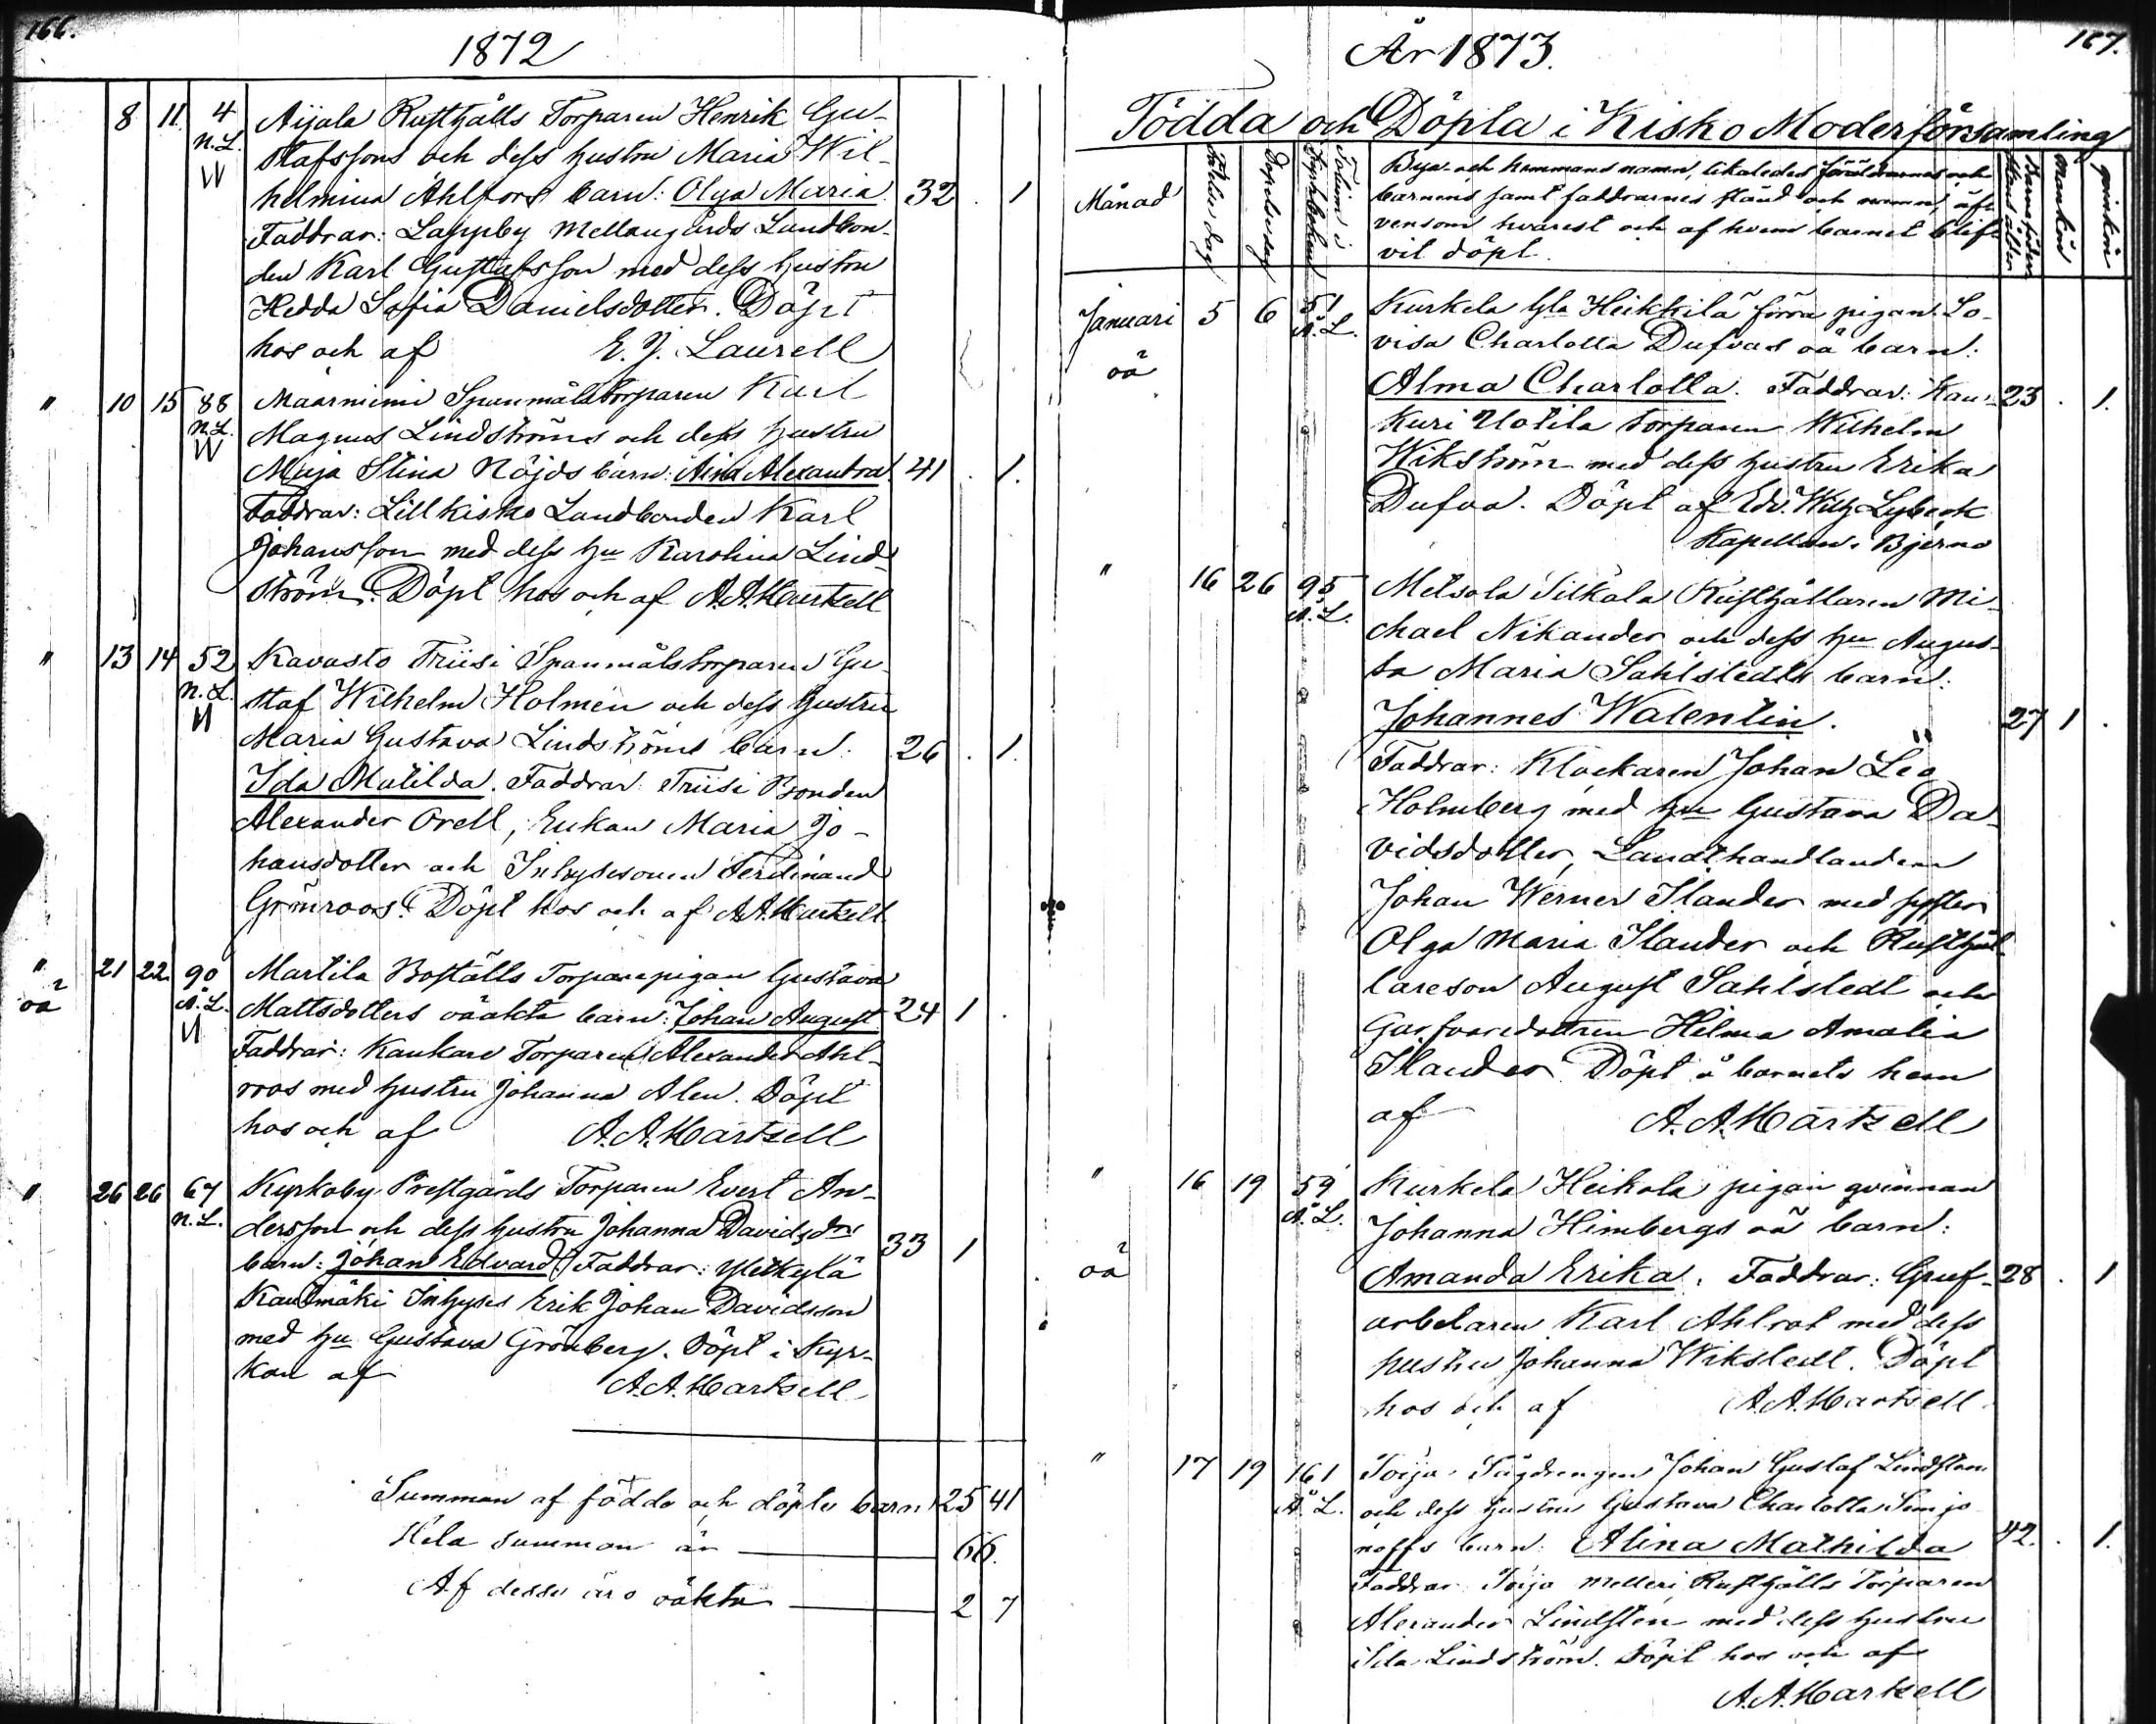 166.
1872
8 11 4 Aijala Rusthålls Torparen Henrik Gu-
n.L. stafssons och dess hustru Maria Wil-
helmina Ahlfors barn: Olga Maria. 32 . 1
Faddrar: Lappby Mellangårds Landbon-
den Karl Gustafsson med dess hustru
Hedda Sofia Danielsdotter. Döpt
hos och af E. J. Laurell
" 10 15 88 Maarniemi Spanmålstorparen Karl
n.L. Magnus Lindströms och dess hustru
Maja Stina Nöjds barn: Aina Alexandra. 41 . 1.
Faddrar: Lillkisko Landbonden Karl
Johansson med dess hu Karolina Lind-
ström. Döpt hos och af A.A.Hartzell
" 13 14 52 Kavasto Friisi Spanmålstorparen Gu-
n.L. staf Wilhelm Holmén och dess hustru
Maria Gustava Lindströms barn: 26 . 1.
Ida Matilda. Faddrar: Friisi Bonden
Alexander Orell, Enkan Maria Jo-
hansdotter och Inhysesonen Ferdinand
Grönroos. Döpt hos och af A.A.Hartzell
" 21 22 90 Martila Boställs Torparepigan Gustava
oä A.L. Mattsdotters oäkta barn: Johan August 24 1 .
Faddrar: Kaukare Torparen Alexander Ahl-
roos med hustru Johanna Alen. Döpt
hos och af A.A.Hartzell
" 26 26 67 Kyrkoby Prestgårds Torparen Evert An-
n.L. dersson och dess hustru Johanna Davidsdrs
barn: Johan Edvard. Faddrar: Yletkylä 33 1
Kantmäki Inhyses Erik Johan Davidsson
med hu Gustava Grönberg. Döpt i Kyr-
kan af A.A.Hartzell
Summan af födda och döpta barn 25 41
Hela summan är 66.
Af dessa äro oäkta 2 7
167.
År 1873.
Födda och Döpta i Kisko Moderförsamling
Månad Födelse dag Döpelse dag Folium i Kyrkoboken Bya- och hemmans namn, likaledes föräldrarnes och
barnens samt faddrarnes stånd och namn, äf-
vensom hvarest och af hvem barnet blif-
vit döpt. Mankön qvinkön
Januari 5 6 51 Kurkela Gla Heikkilä förra pigan Lo-
oä A.L. visa Charlotta Dufvas oä barn:
Alma Charlotta. Faddrar: Kau- 23 . 1.
kuri Uotila torparen Wilhelm
Wikström med dess hustru Erika
Dufva. Döpt af Edv. Wilh Lybeck
Kapellan i Bjerno
" 16 26 95 Metsola Silkala Rusthållaren Mi-
A.L. chael Nikander och dess hu Augus-
ta Maria Sahlstedts barn:
Johannes Walentin. 27 1 .
Faddrar: Klockaren Johan Leo
Holmberg med hu Gustava Da-
vidsdotter, Landthandlanden
Johan Werner Ilander med syster
Olga Maria Ilander och Rusthål-
lareson August Sahlstedt och
Garfvaredottren Hilma Amalia
Ilander. Döpt i barnets hem
af A.A.Hartzell
" 16 19 59 Kurkela Heikola pigan qvinnan
oä A.L. Johanna Himbergs oä barn:
Amanda Erika. Faddrar: Gruf- 28 . 1
arbetaren Karl Ahlrot med dess
hustru Johanna Wikstedt. Döpt
hos och af A.A.Hartzell
" 17 19 161 Toija Sågdrengen Johan Gustaf Lindsten
A.L. och dess hustru Gustava Charlotta Simjo-
noffs barn: Alina Mathilda 42. . 1.
Faddrar: Toija Melleri Rusthålls Torparen
Alexander Lindsten med dess hustru
Ida Lindström. Döpt hos och af
A.A.Hartzell